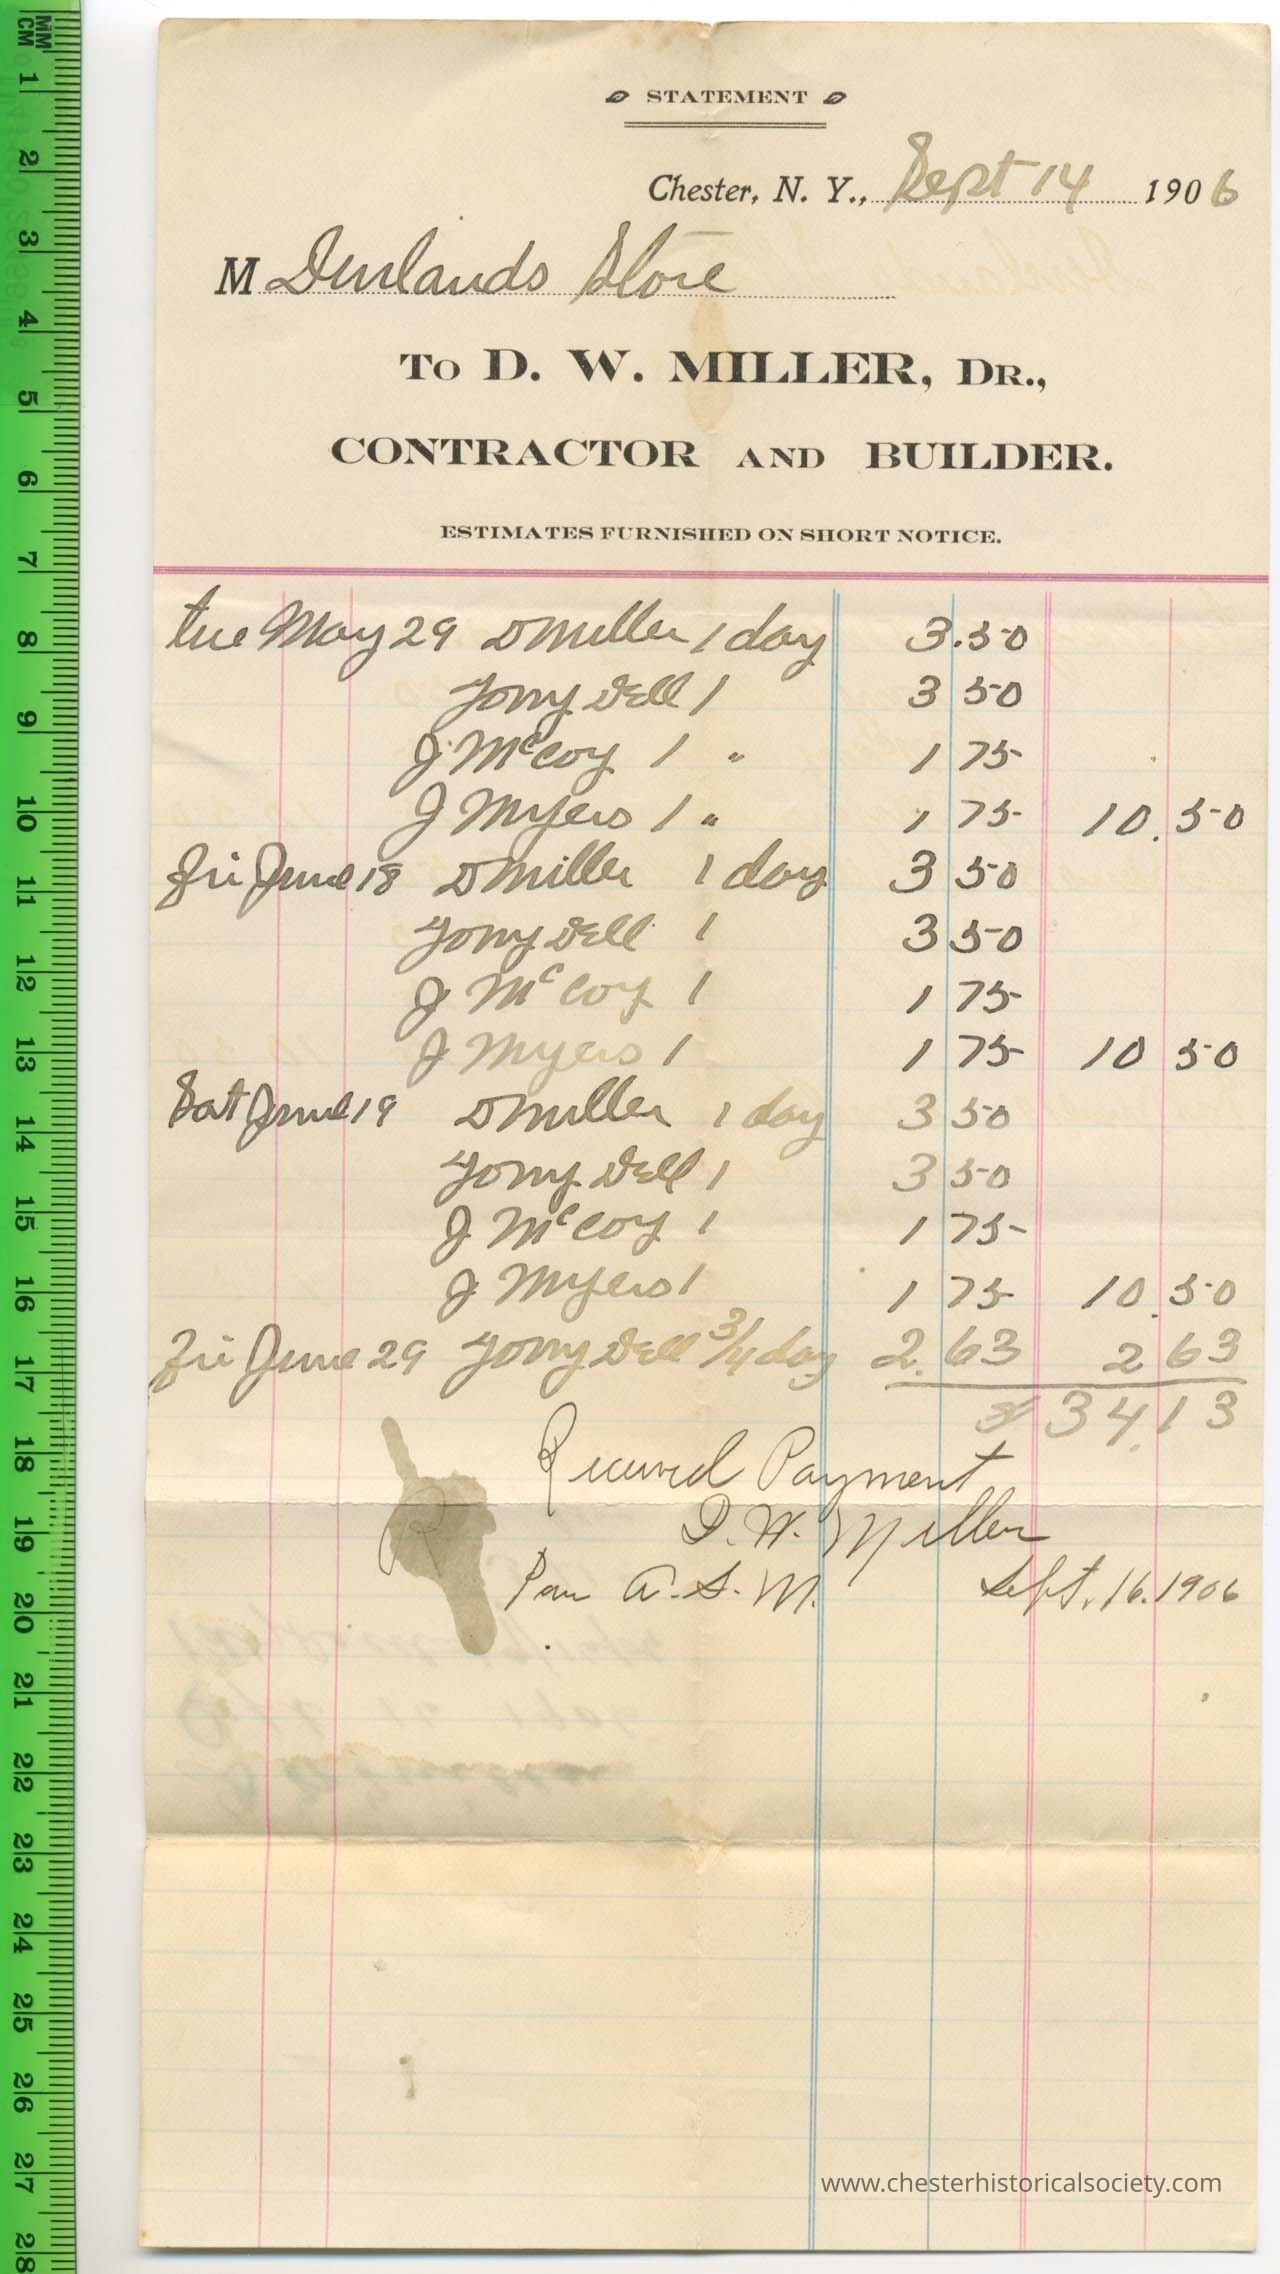 STATEMENT
Chester, N. Y., Sept 14 1906
M Durlands Store
To D. W. MILLER, Dr.,
CONTRACTOR AND BUILDER.
ESTIMATES FURNISHED ON SHORT NOTICE.
tue May 29 D Miller 1 day 3.50
Tony Dell 1 3 50
J McCoy 1 " 1 75
J Myers 1 " 1 75 10.50
fri June 18 D Miller 1 day 3 50
Tony Dell 1 3 50
J McCoy 1 1 75
J Myers 1 1 75 10 50
Sat June 19 D Miller 1 day 3 50
Tony Dell 1 3 50
J McCoy 1 1 75
J Myers 1 1 75 10.50
fri June 29 Tony Dell 3/4 day 2.63 2 63
$ 34.13
Received Payment
D. W. Miller
Per A. S. M. Sept. 16. 1906
www.chesterhistoricalsociety.com
MM
CM
1
2
3
4
5
6
7
8
9
10
11
12
13
14
15
16
17
18
19
20
21
22
23
24
25
26
27
28